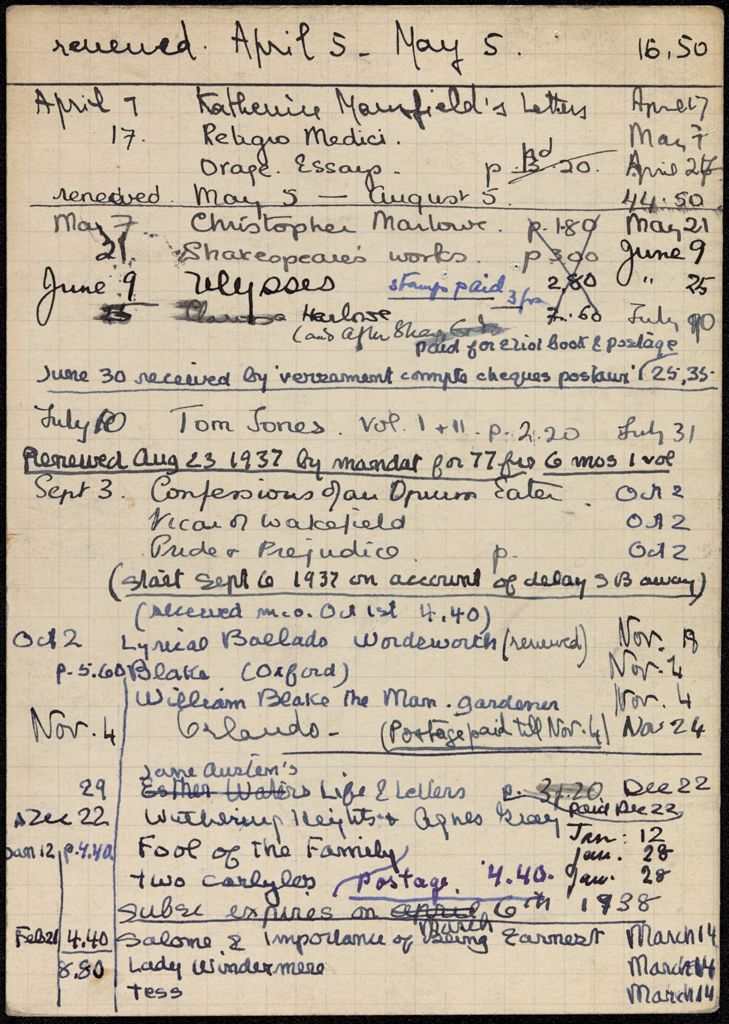 renewed. April 5 - May 5. 16,50
April 7 Katherine Mansfield's Letters April 17
17. Religio Medici. May 7
Orage. Essays. p pd 3.20. April 27
renewed. May 5 — August 5. 44.50
May 7. Christopher Marlowe. p. 1.80 May 21
21. Shakespeare's works. p 3.00 June 9
June 9 Ulysses stamps paid 3 frs 2,80 " 25
25 Clarissa Harlowe 2.60 July 10
(and After Strange Gods
paid for Eliot book & postage
June 30 received by 'verrament compte cheques postaux' (25,35.
July 10 Tom Jones. Vol. I + II. p. 2.20 July 31
Renewed Aug 23 1937 by mandat for 77 frs 6 mos 1 vol
Sept 3. Confessions of an Opium Eater. Oct 2
Vicar of Wakefield Oct 2
Pride & Prejudice p. Oct 2
(start Sept 6 1937 on account of delay S B away)
(received m.o. Oct 1st 4.40)
Oct 2 Lyrical Ballads Wordsworth (renewed) Nov. 18
p. 5.60 Blake (Oxford) Nov. 4
William Blake the Man. gardener Nov. 4
Nov. 4 Orlando - (Postage paid till Nov. 4) Nov 24
Jane Austen's
29 Esther Waters Life & Letters p. 3.20 Dec 22
paid Dec 22
Dec 22 Wuthering Heights & Agnes Grey Jan: 12
Jan 12 p. 4.40 Fool of the Family Jan. 28
Two Carlyles Postage. 4.40. Jan. 28
Subsc expires on April March 6th 1938
Feb 21 4.40 Salome & Importance of Being Earnest March 14
8.80 Lady Windermere March 14
Tess March 14